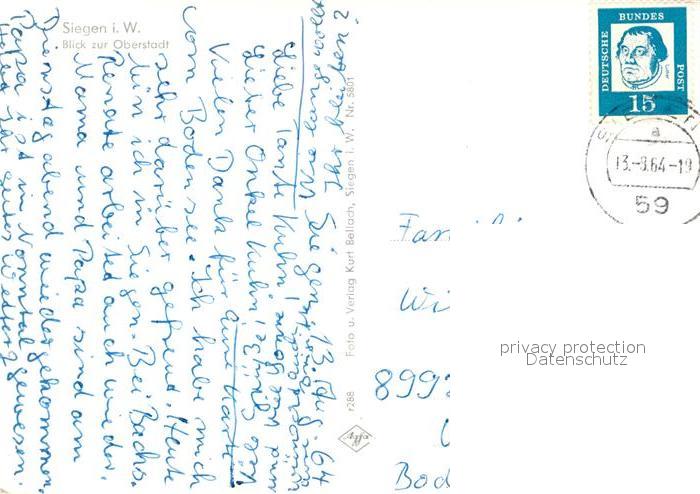 Siegen i. W.
Blick zur Oberstadt
DEUTSCHE
BUNDES
POST
15
13.-8.64-19
a
59
Foto u. Verlag Kurt Bellach, Siegen i. W. Nr. 5801
r288
Agfa
Siegen, 13. Aug. 64
Liebe Tante Kuhn!
Lieber Onkel Kuhn!
Vielen Dank für Eure Karte
vom Bodensee. Ich habe mich
sehr darüber gefreut. Heute
bin ich in Siegen. Bei Bachs.
Renate arbeitet auch wieder.
Mama und Papa sind am
Dienstag abend wiedergekommen.
Papa ist in
Habt Ihr gutes Wetter gewesen.
Ihr bleiben?
Fam
Wi
899
Bod
privacy protection
Datenschutz